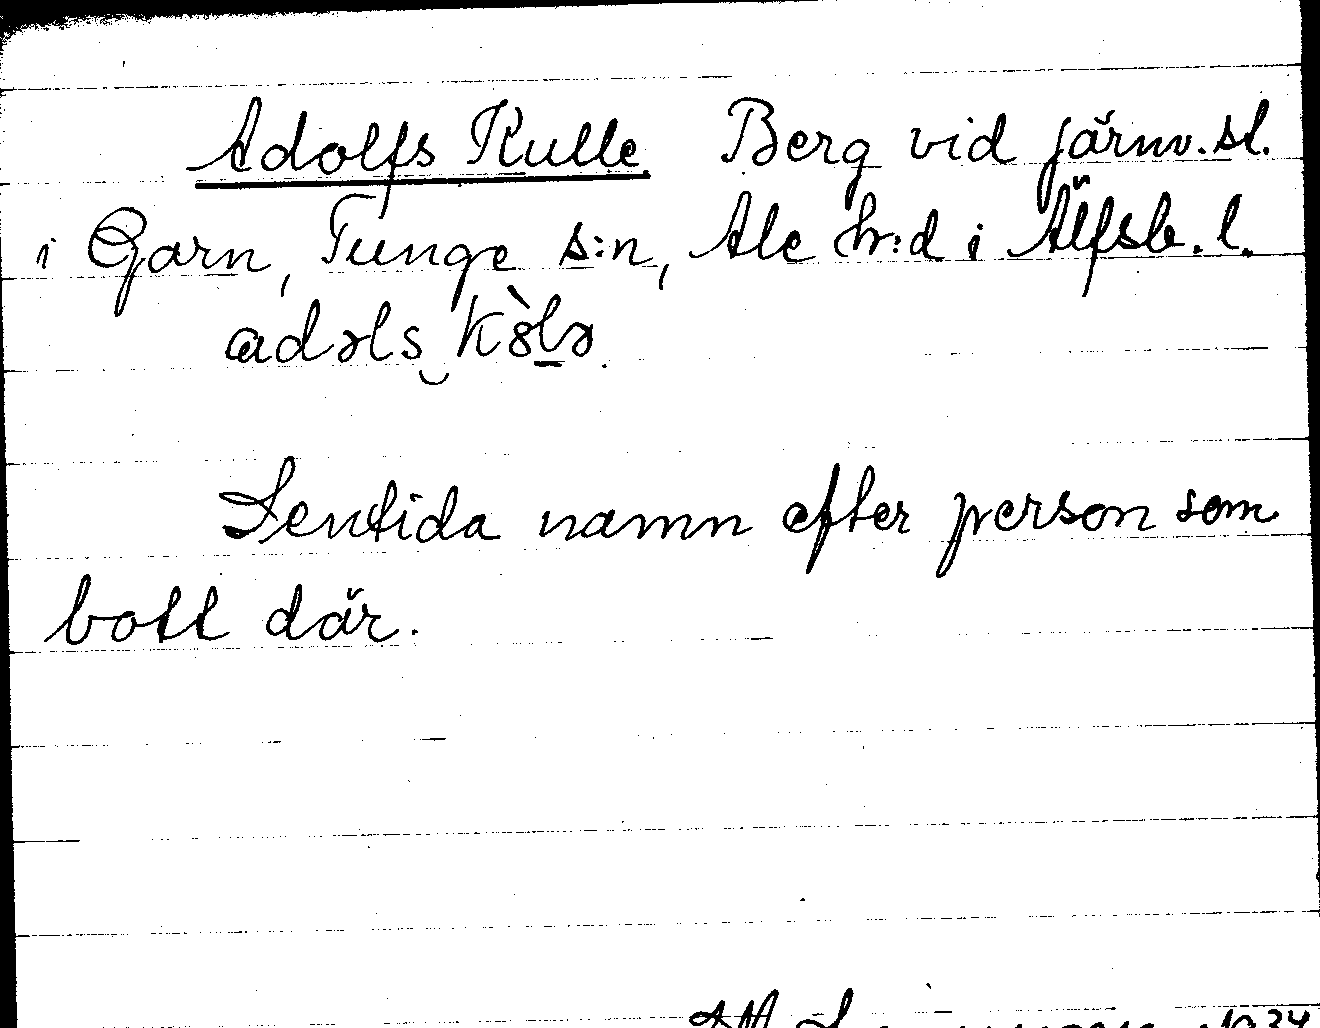 Adolfs Kulle Berg vid järnv.st.
i Garn, Tunge s:n, Ale h:d i Älfsb. l.
adəls‿kòlə.
Sentida namn efter person som
bott där.
1934